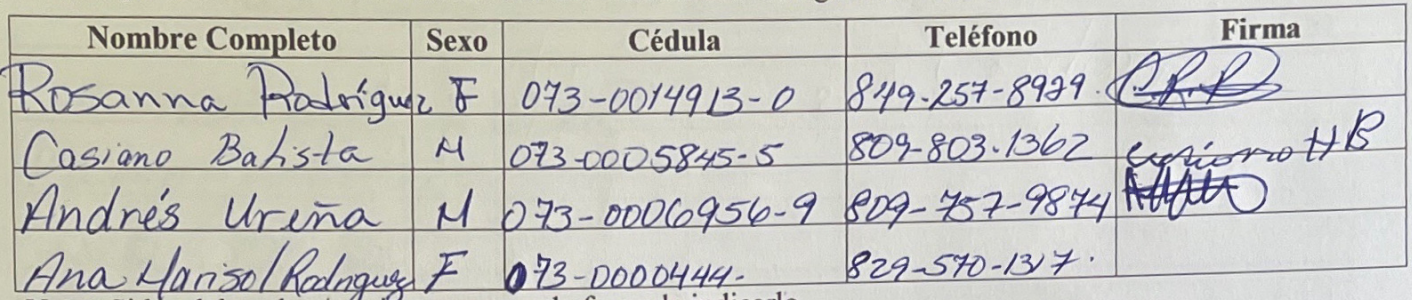 Nombre Completo Sexo Cédula Teléfono Firma
Rosanna Rodríguez F 073-0014913-0 849-257-8929.
Casiano Batista M 073-0005845-5 809-803-1362 HB
Andrés Ureña M 073-0006956-9 809-757-9874
Ana Marisol Rodriguez F 073-0000444- 829-570-1317.